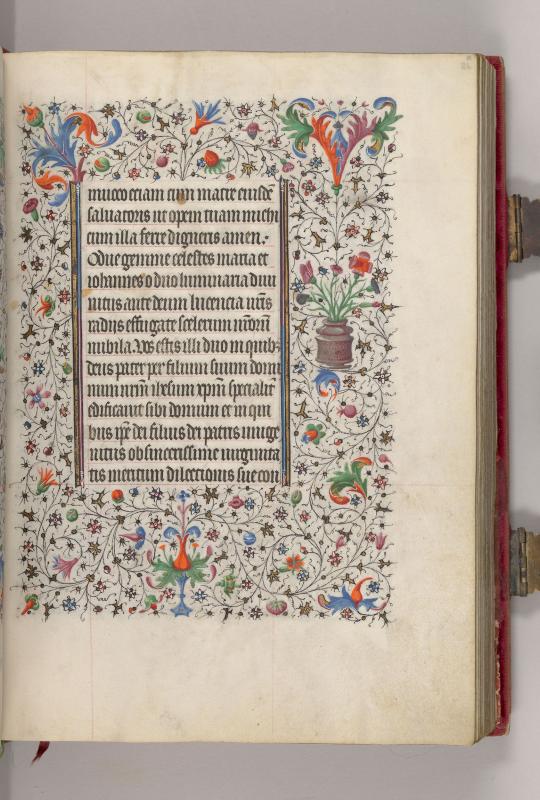 inuoco etiam cum matre eiusdē
saluatoris ut opem tuam michi
cum illa ferre digneris amen.
O due gemme celestes maria et
iohannes o duo luminaria diui
nitus ante deum lucencia ur̄is
radijs effugate scelerum nr̄orū
nubila. Vos estis illi duo in quibꝫ
deus pater per filium suum domi
num nr̄m ihesum xp̄m specialit̄
edificauit sibi domum et in qui
bus ip̄e dei filius dei patris unige
nitus ob sincerissime uirginita
tis meritum dilectionis sue con